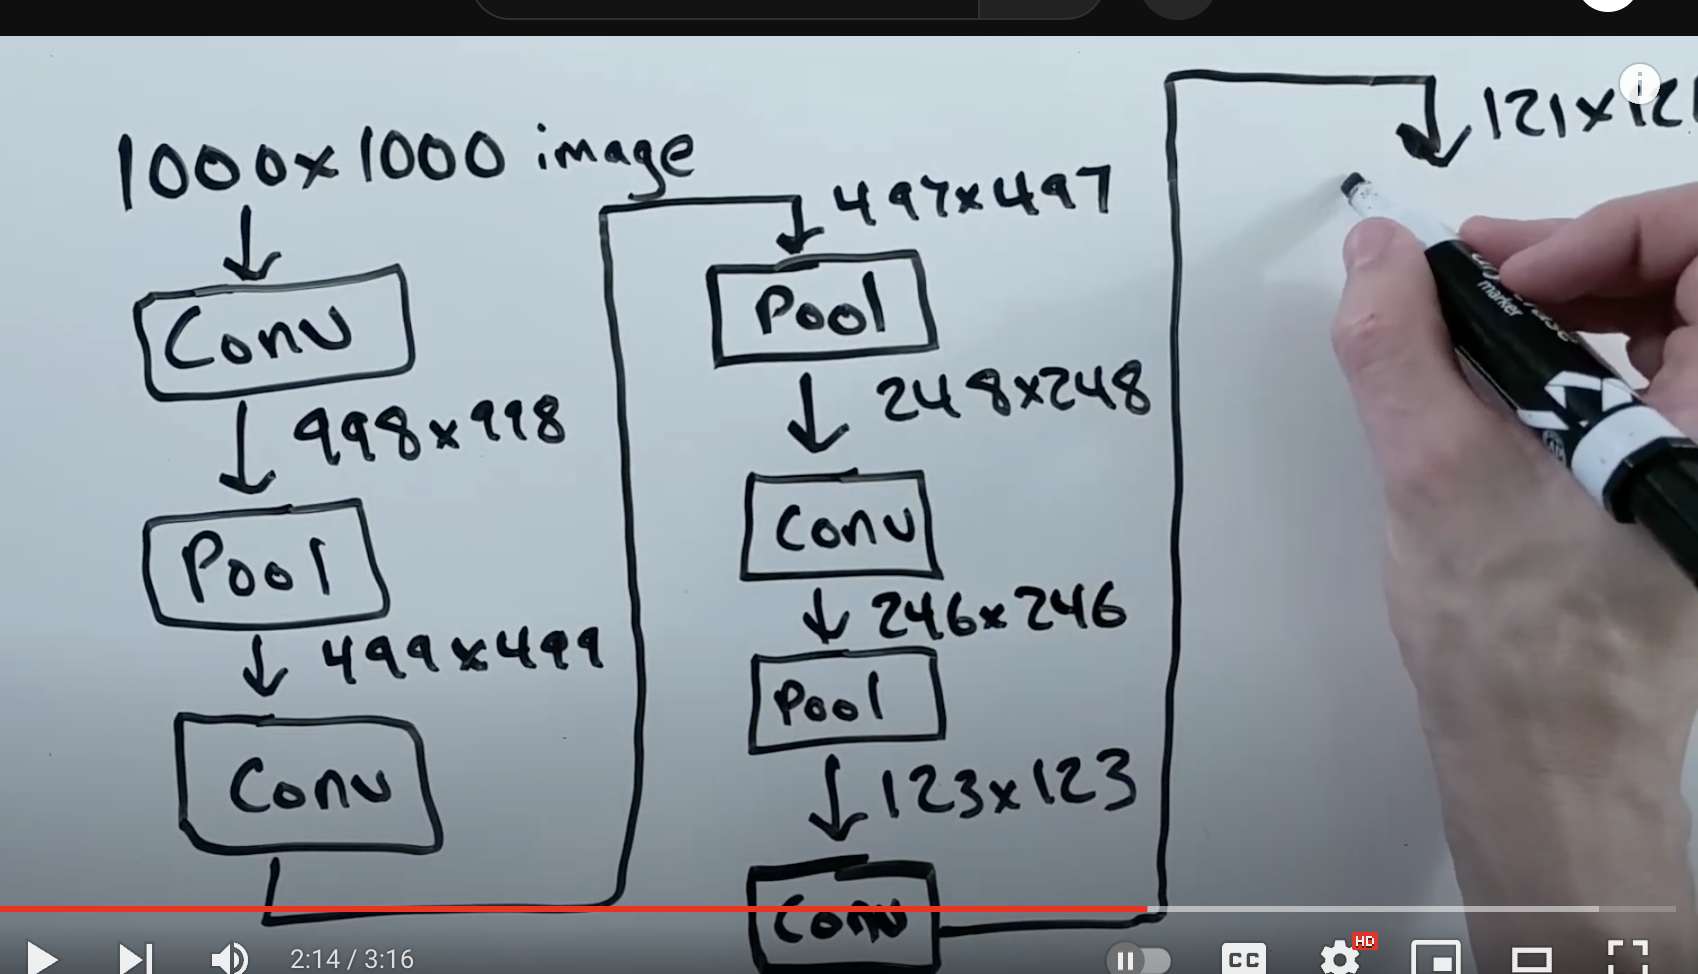 1000x1000 image
Conv
998x998
Pool
499x499
Conv
497x497
Pool
248x248
Conv
246x246
Pool
123x123
Conv
121x121
marker
2:14 / 3:16
CC
HD